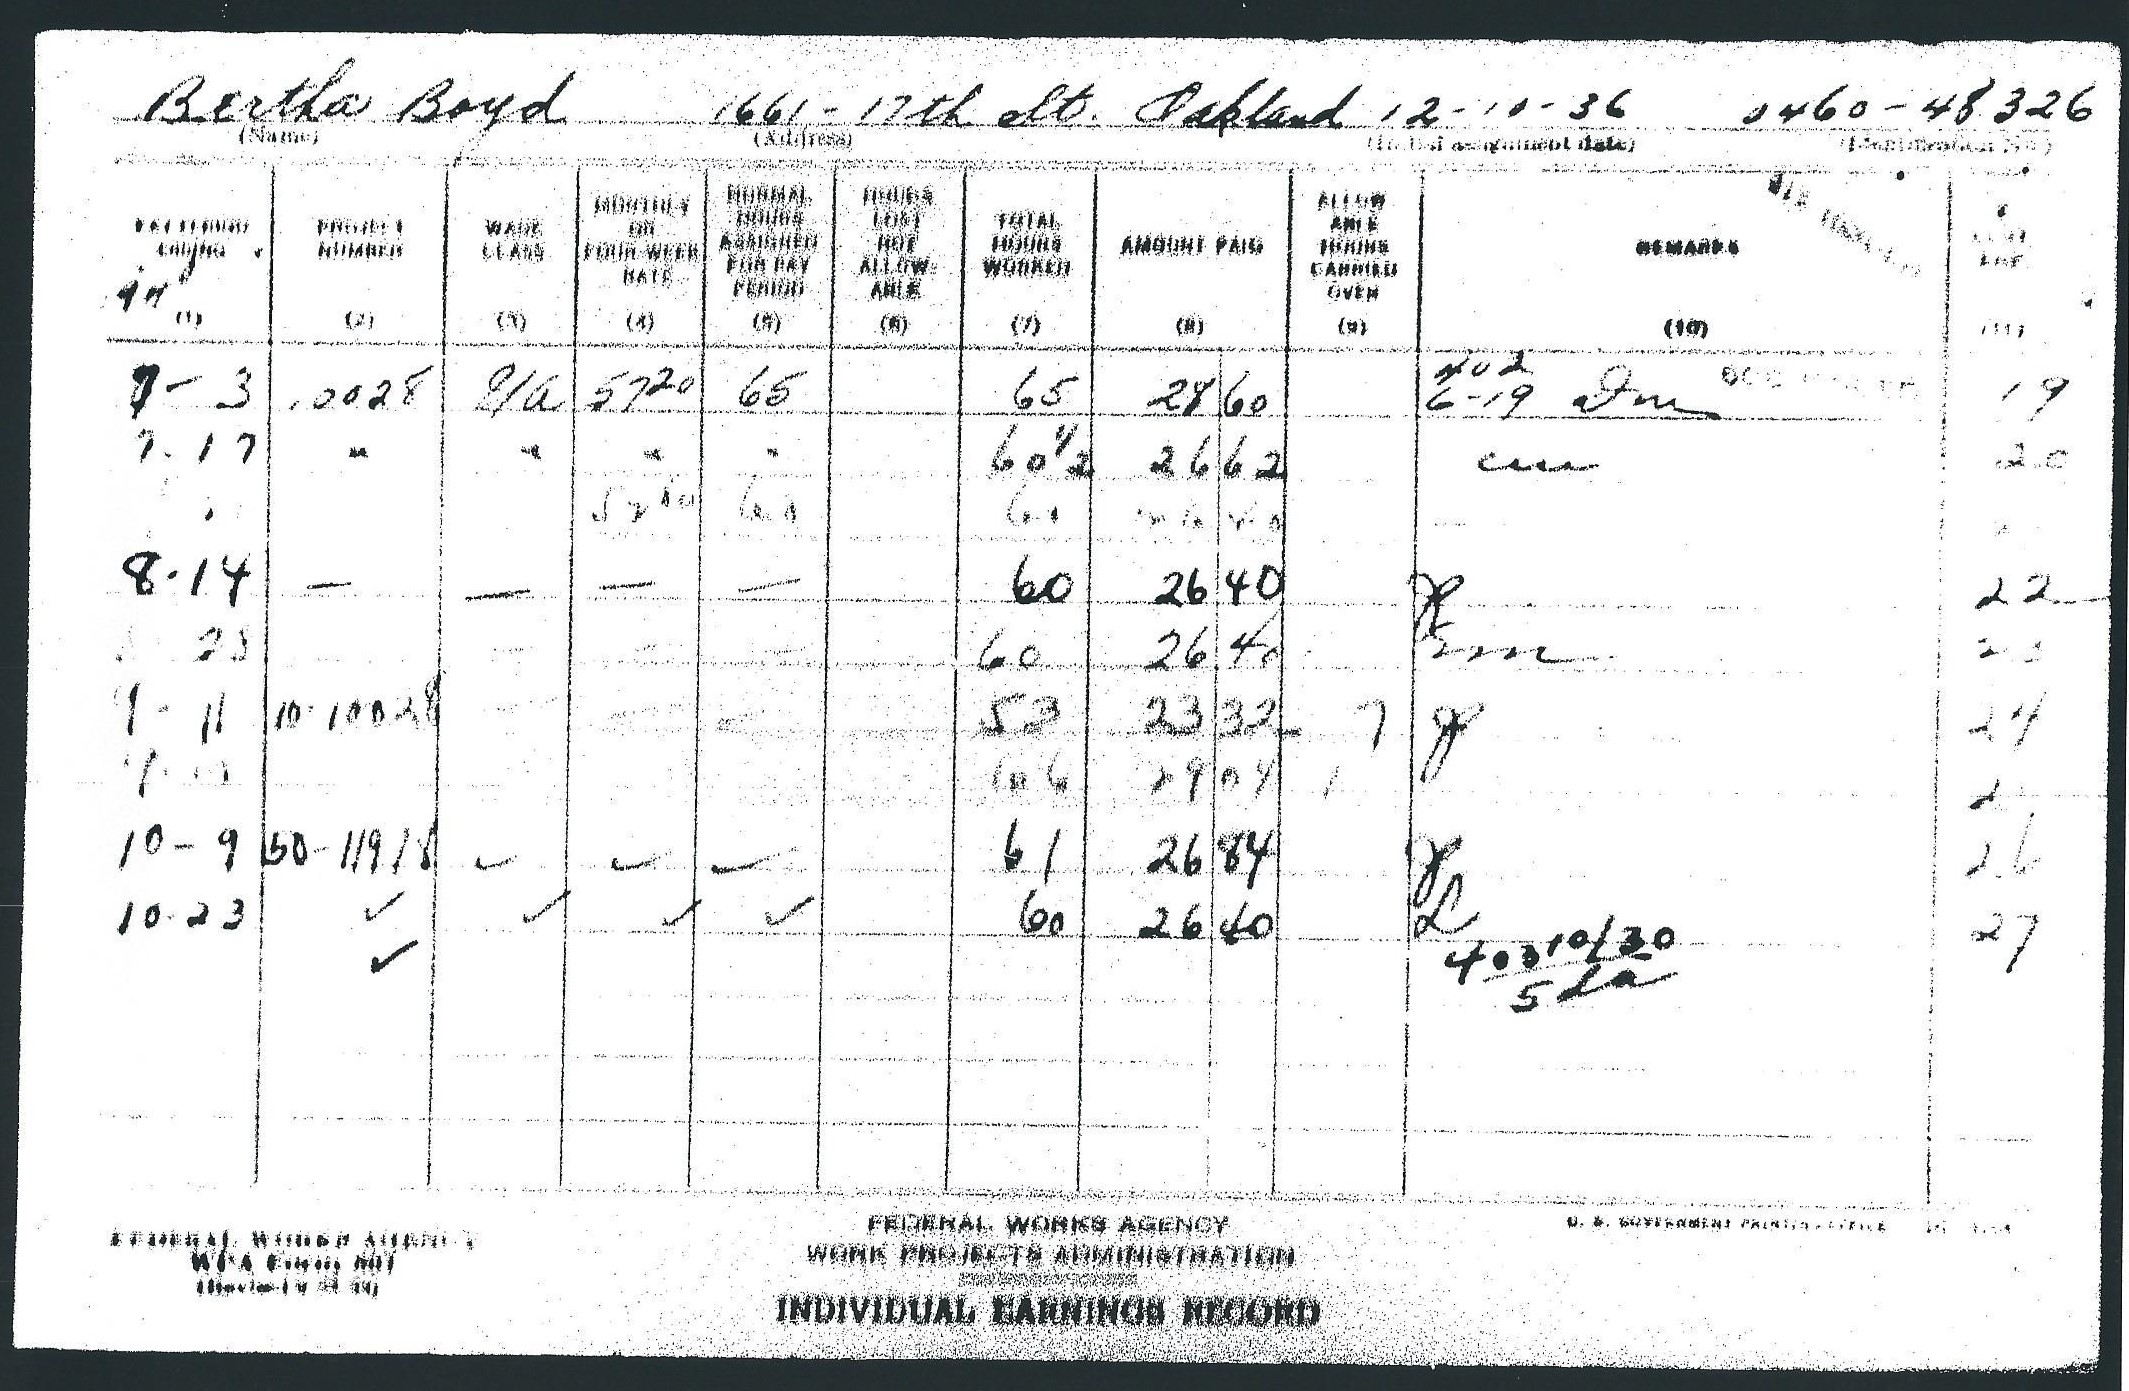 Bertha Boyd 1661-17th St. Oakland 12-10-36 0460-48326
(Name) (Address) (Initial assignment date) (Identification No.)
PAY PERIOD ENDING PROJECT NUMBER WAGE CLASS MONTHLY OR FOUR-WEEK RATE NORMAL HOURS ASSIGNED FOR PAY PERIOD HOURS LOST NOT ALLOW-ABLE TOTAL HOURS WORKED AMOUNT PAID ALLOW ABLE HOURS CARRIED OVER REMARKS
(1) (2) (3) (4) (5) (6) (7) (8) (9) (10) (11)
7-3 .0028 57 20 65 65 28 60 402 6-19 19
7-17 " " " " 60 1/2 26 62 20
52 80 60 60 26 40
8-14 — — — — 60 26 40 22
28 60 26 40 23
9-11 10-10028 53 23 32 7 24
66 29 04 1
10-9 50-11918 ✓ ✓ ✓ 61 26 84 26
10-23 ✓ ✓ ✓ ✓ 60 26 40 27
✓ 403 10/30
FEDERAL WORKS AGENCY
WORK PROJECTS ADMINISTRATION
INDIVIDUAL EARNINGS RECORD
FEDERAL WORKS AGENCY
WPA Form 501
U. S. GOVERNMENT PRINTING OFFICE